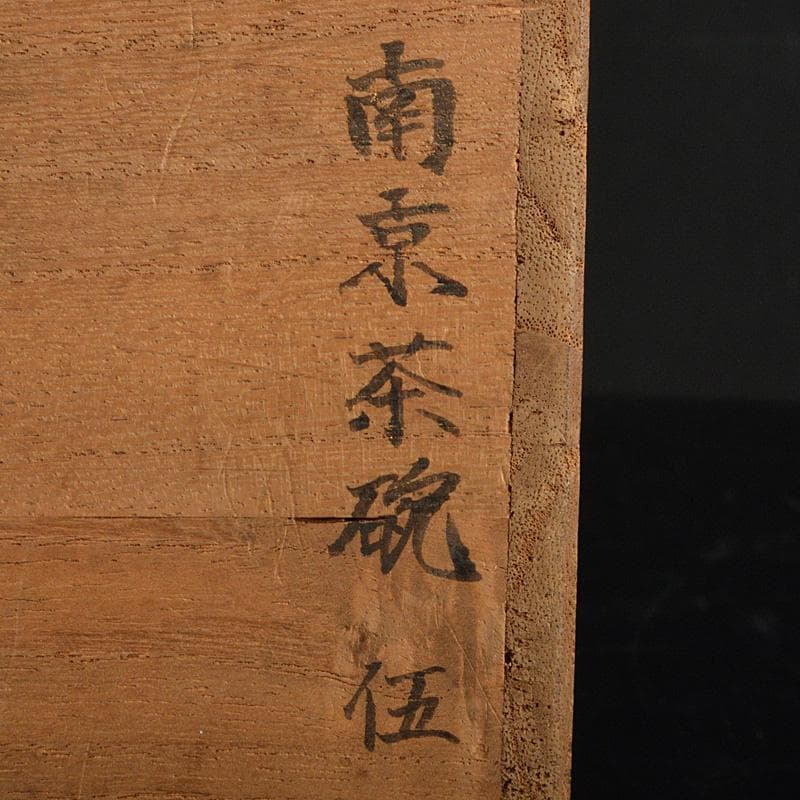 南京茶碗 伍